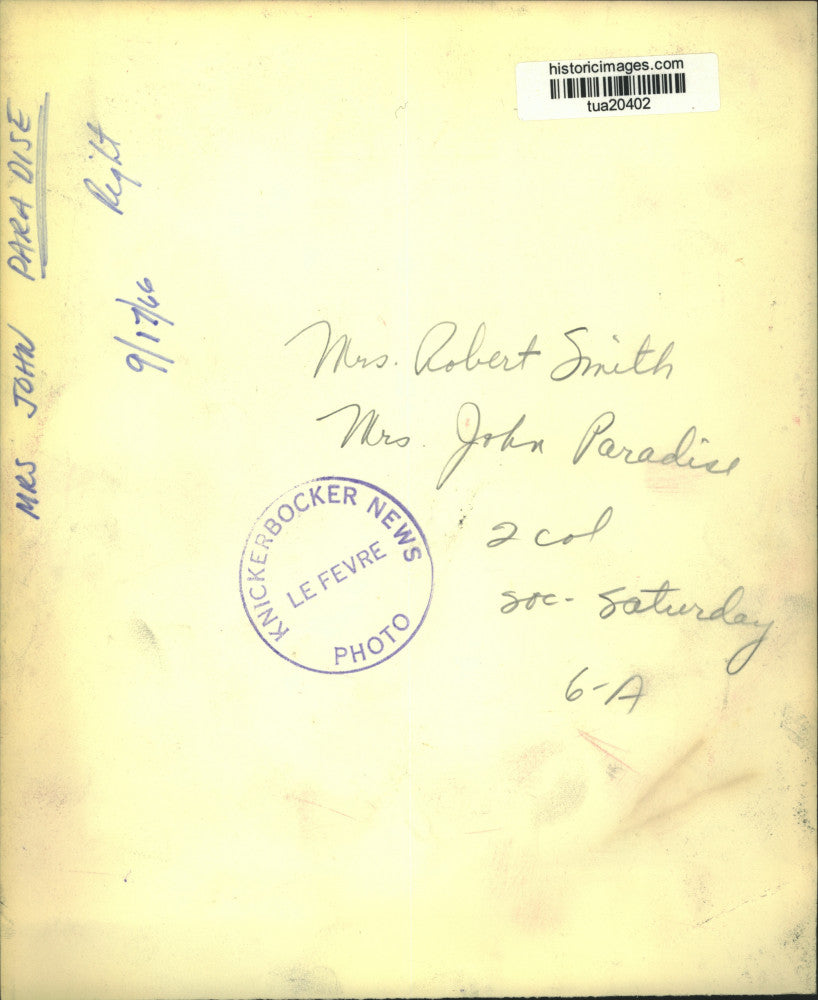 historicimages.com
tua20402
MRS JOHN PARADISE
Right
9/17/66
Mrs. Robert Smith
Mrs. John Paradise
2 col
soc- Saturday
6-A
KNICKERBOCKER NEWS
LE FEVRE
PHOTO